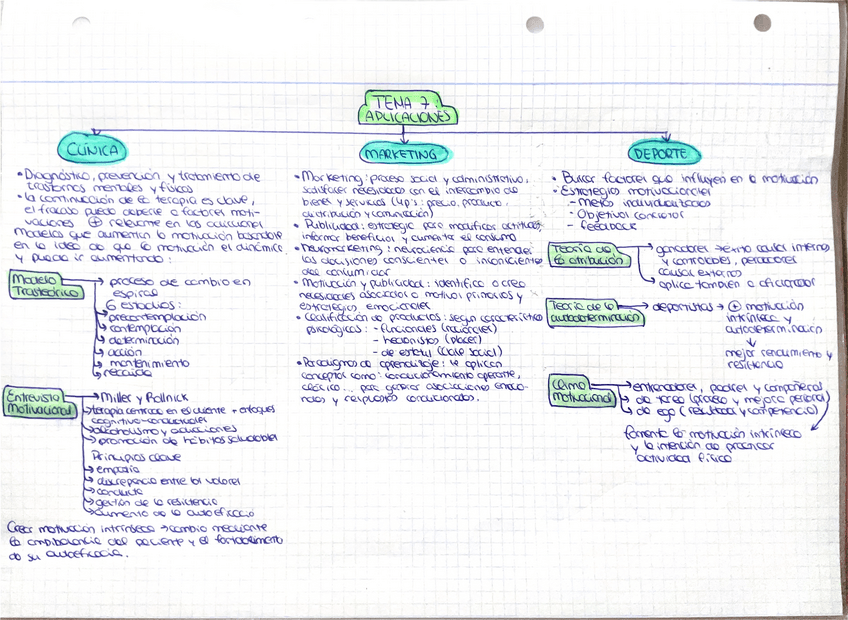 TEMA 7:
APLICACIONES
CLÍNICA
• Diagnóstico, prevención y tratamiento de
trastornos mentales y físicos
• la continuación de la terapia es clave,
el fracaso puede deberse a factores moti-
vaciones ⊕ relevante en las adicciones
Modelos que aumentan la motivación basandose
en la idea de que la motivación es dinámica
y puede ir aumentando:
Modelo
Trasteórico
proceso de cambio en
espiral
6 estadios:
precontemplación
contemplación
determinación
acción
mantenimiento
recaída
Entrevista
Motivacional
Miller y Rollnick
terapia centrada en el cliente + enfoques
cognitivo-conductuales
alcoholismo y adicciones
promoción de hábitos saludables
Principios clave
empatía
discrepancia entre los valores
conducta
gestión de la resistencia
aumento de la autoeficacia
Crear motivación intrínseca → cambio mediante
la ambibalencia del paciente y el fortalecimiento
de su autoeficacia.
MARKETING
• Marketing: proceso social y administrativo,
satisfacer necesidades con el intercambio de
bienes y servicios (4p's: precio, producto,
distribución y comunicación)
• Publicidad: estrategia para modificar actitudes,
informar beneficios y aumentar el consumo
• Neuromarketing: neurociencia para entender
las decisiones conscientes o inconscientes
del consumidor
• Motivación y publicidad: identifica o crea
necesidades asociadas a motivos primarios y
estrategias emocionales
• Clasificación de productos: según características
psicológicas: - funcionales (racionales)
- hedonistas (placer)
- de estatus (clase social)
• Paradigmas de aprendizaje: se aplican
conceptos como: condicionamiento operante,
clásico... para generar asociaciones emocio-
nales y respuestas condicionadas.
DEPORTE
• Buscar factores que influyen en la motivación
• Estrategias motivacionales
- Metas individualizadas
- Objetivos concretos
- feedback
Teoría de
la atribución
ganadores → éxito causas internas
y controlables, perdedores
causas externas
aplica también a aficionados
Teoría de la
autodeterminación
deportistas → ⊕ motivación
intrínseca y
autodeterminación
mejor rendimiento y
resistencia
Clima
motivacional
entrenadores, padres y compañeros
de tarea (proceso y mejora personal)
de ego (resultados y competencia)
fomenta la motivación intrínseca
y la intención de practicar
actividad física